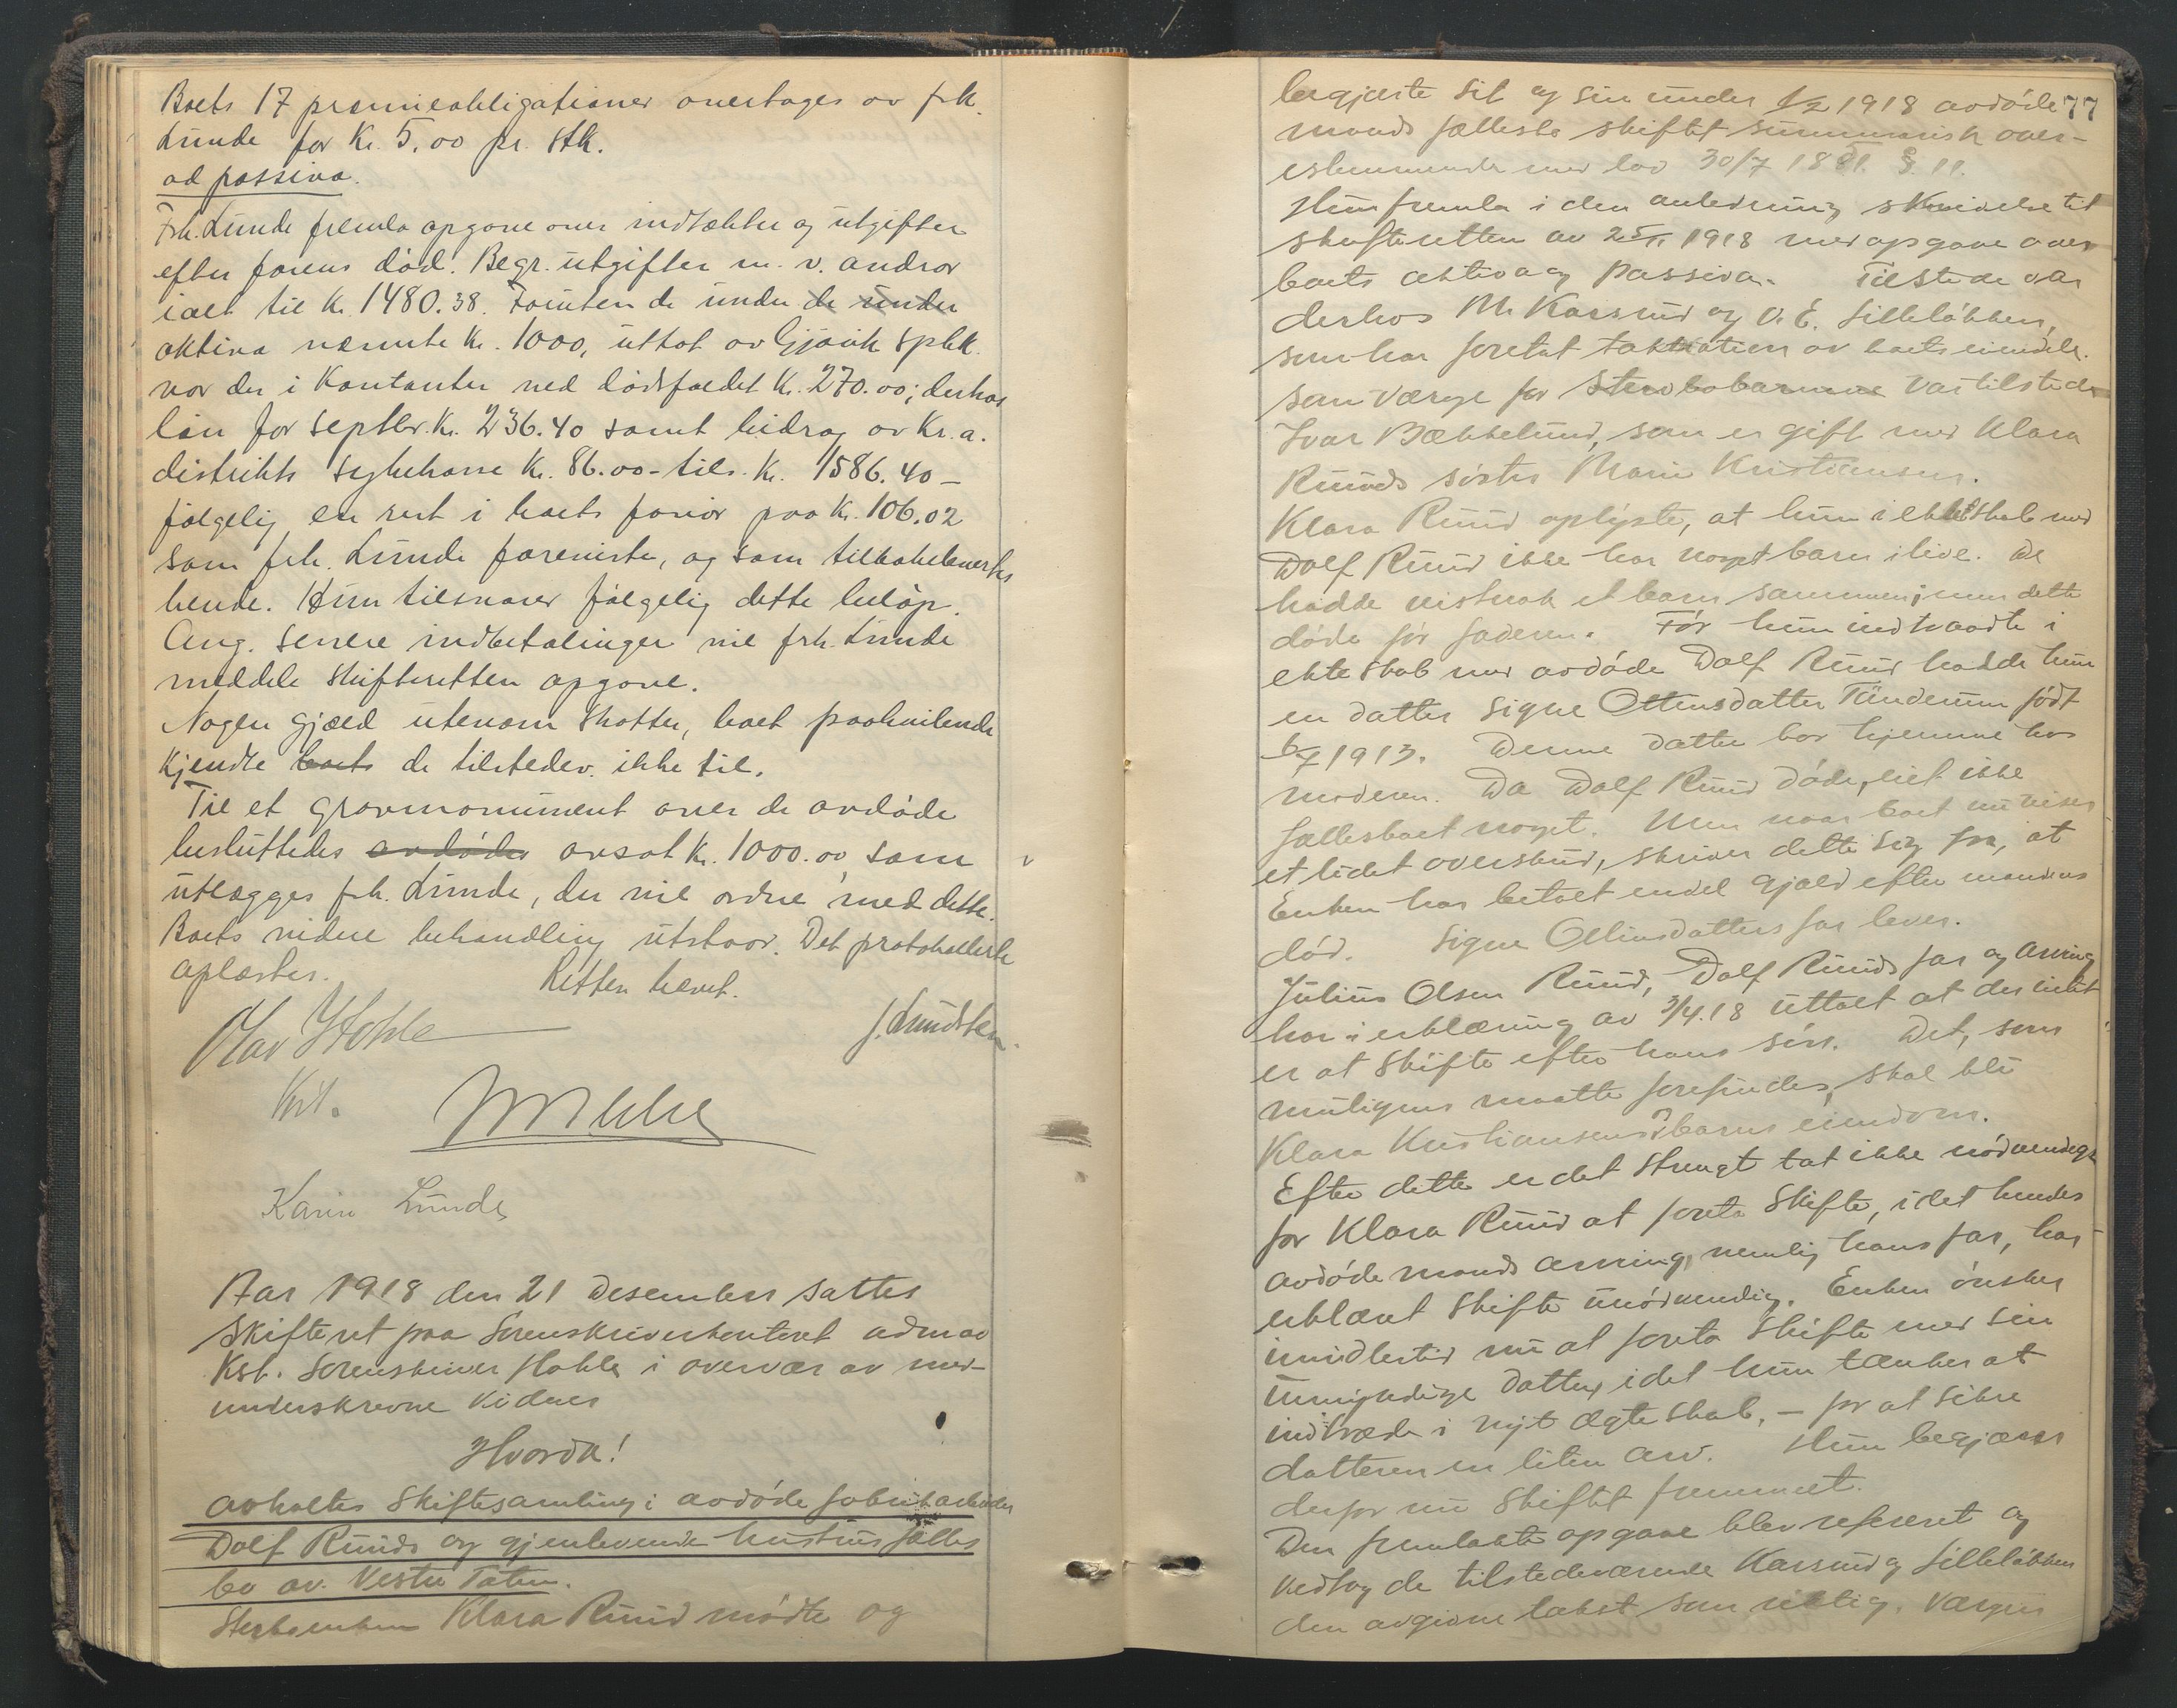 Boets 17 præmieobligationer overtages av frk.
Lunde for Kr. 5,00 pr. stk.
ad passiva.
Frk. Lunde fremla opgave over indtækter og utgifter
efter farens död. Begr. utgifter m. v. andrar
ialt til Kr. 1480.38. Foruten de under de under
aktiva nævnte Kr. 1000, uttat av Gjövik Spbk.
var der i Kontanter ved dödsfaldet Kr. 270.00; derhos
lön for septbr. Kr. 236.40 samt bidrag av Kr. a.
distrikts sykekasse Kr. 86.00 - tils. Kr. 1586.40 -
fölgelig en rest i boets favör paa Kr. 106.02
som frk. Lunde foreviste, og som tilbakelevertes
hende. Hun tilsvarer fölgelig dette belöp.
Ang. senere indbetalinger vil frk. Lunde
meddele skifteretten opgave.
Nogen gjæld utenom skatter, boet paahvilende
kjendte boets de tilstedev. ikke til.
Til et gravmonument over de avdöde
besluttedes avdöde avsat Kr. 1000.00, som
utlægges frk. Lunde, der vil ordne med dette.
Boets videre behandling utstaar. Det protokollerte
oplæstes. Retten hævet.
Olav Hohle J. Lundsten.
Kst.
Karin Lunde
Aar 1918 den 21 Desember sattes
Skifteret paa Sorenskriverkontoret adm av
Kst. Sorenskriver Hohle i overvær av med-
underskrevne vidner
Hvorda!
avholtes Skiftesamling i avdöde fabrikarbeider
Dolf Ruuds og gjenlevende hustrus fælles
bo av Vestre Toten.
Sterboenken Klara Ruud mödte og
begjærte sit og sin under 1/2 1918 avdöde 77
mands fællesbo skiftet summarisk over-
esstemmende med lov 30/7 1851. § 11.
Hun fremla i den anledning skrivelse til
skifteretten av 25/11 1918 med opgave over
boets aktiva og passiva. Tilstede var
derhos M. Karsrud og O. E. Lillelökken,
som har foretat takstation av boets eiendele.
Som værge for Sterbobarnene var tilstede
Ivar Bækkelund, som er gift med Klara
Ruuds söster Marie Kristiansen.
Klara Ruud oplyste, at hun i ekteskab med
Dolf Ruud ikke har noget barn ilive. De
hadde vistnok et barn sammen; men dette
döde för faderen. För hun indtraadte i
ekteskab med avdöde Dolf Ruud hadde hun
en datter Signe Ottinsdatter Tönderum födt
6/7 1913. Denne datter bor hjemme hos
moderen. Da Dolf Ruud döde, eiet ikke
fællesboet noget. Men naar boet nu viser
et lidet overskud, skriver dette sig fra, at
Enken har betalt endel gjæld efter mandens
död. Signe Ottinsdatters far lever.
Julius Olsen Ruud, Dolf Ruuds far og arving
har i erklæring av 3/4.18 uttalt at der intet
er at Skifte efter hans sön. Det, som
muligens maatte forefindes, skal bli
Klara Kristiansens barns eiendom.
Efter dette er det strengt tat ikke nödvendig
for Klara Ruud at foreta Skifte, idet hendes
avdöde mands arving, nemlig hans far, har
erklæret Skifte unödvendig. Enken önsker
imidlertid nu at foreta Skifte med sin
umyndige datter, idet hun tænker at
indtræde i nyt ægteskab, - for at sikre
datteren en liten arv. Hun begjærer
derfor nu Skiftet fremmet.
Den fremlakte opgave blev referert og
vedtog de tilstedeværende Karsrud og Lillelökken
den avgivne takst som riktig. Værgen